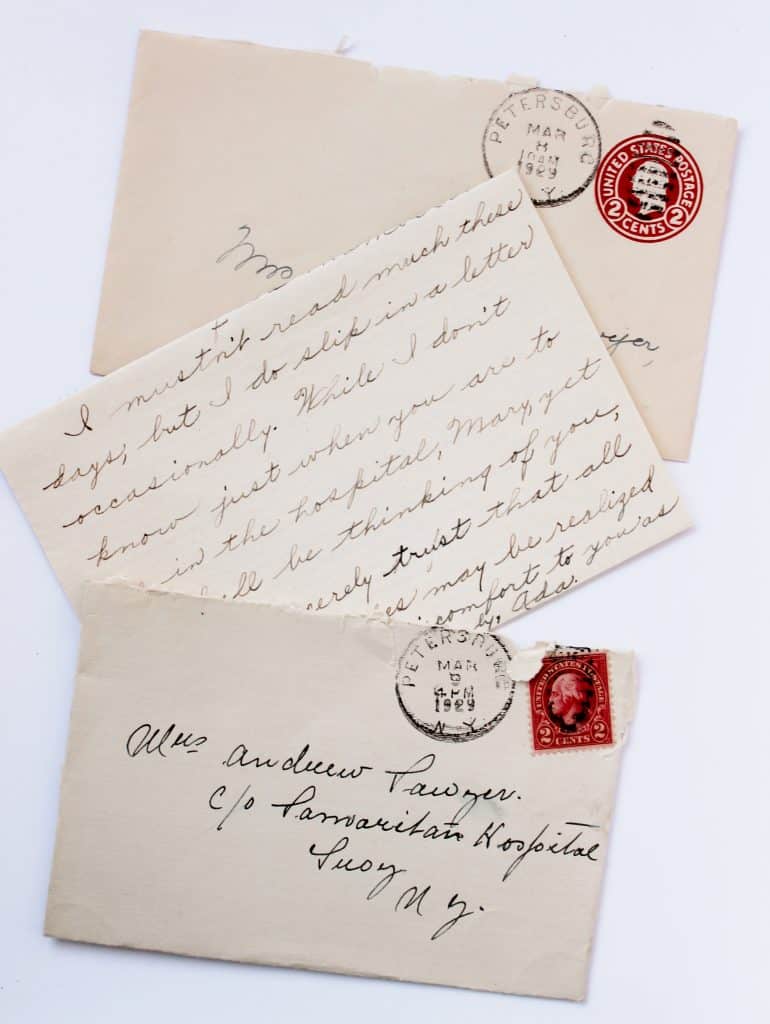 PETERSBURG
MAR
8
10AM
1929
Y.
UNITED STATES POSTAGE
2 CENTS 2
I mustn't read much these
days, but I do slip in a letter
occasionally. While I don't
know just when you are to
in the hospital, Mary, yet
be thinking of you,
trust that all
may be realized
comfort to you as
Ada.
PETERSBURG
MAR
4PM
1929
N.Y.
UNITED STATES POSTAGE
2 CENTS 2
Mrs Andrew Sawyer.
c/o Samaritan Hospital
Troy
N.Y.